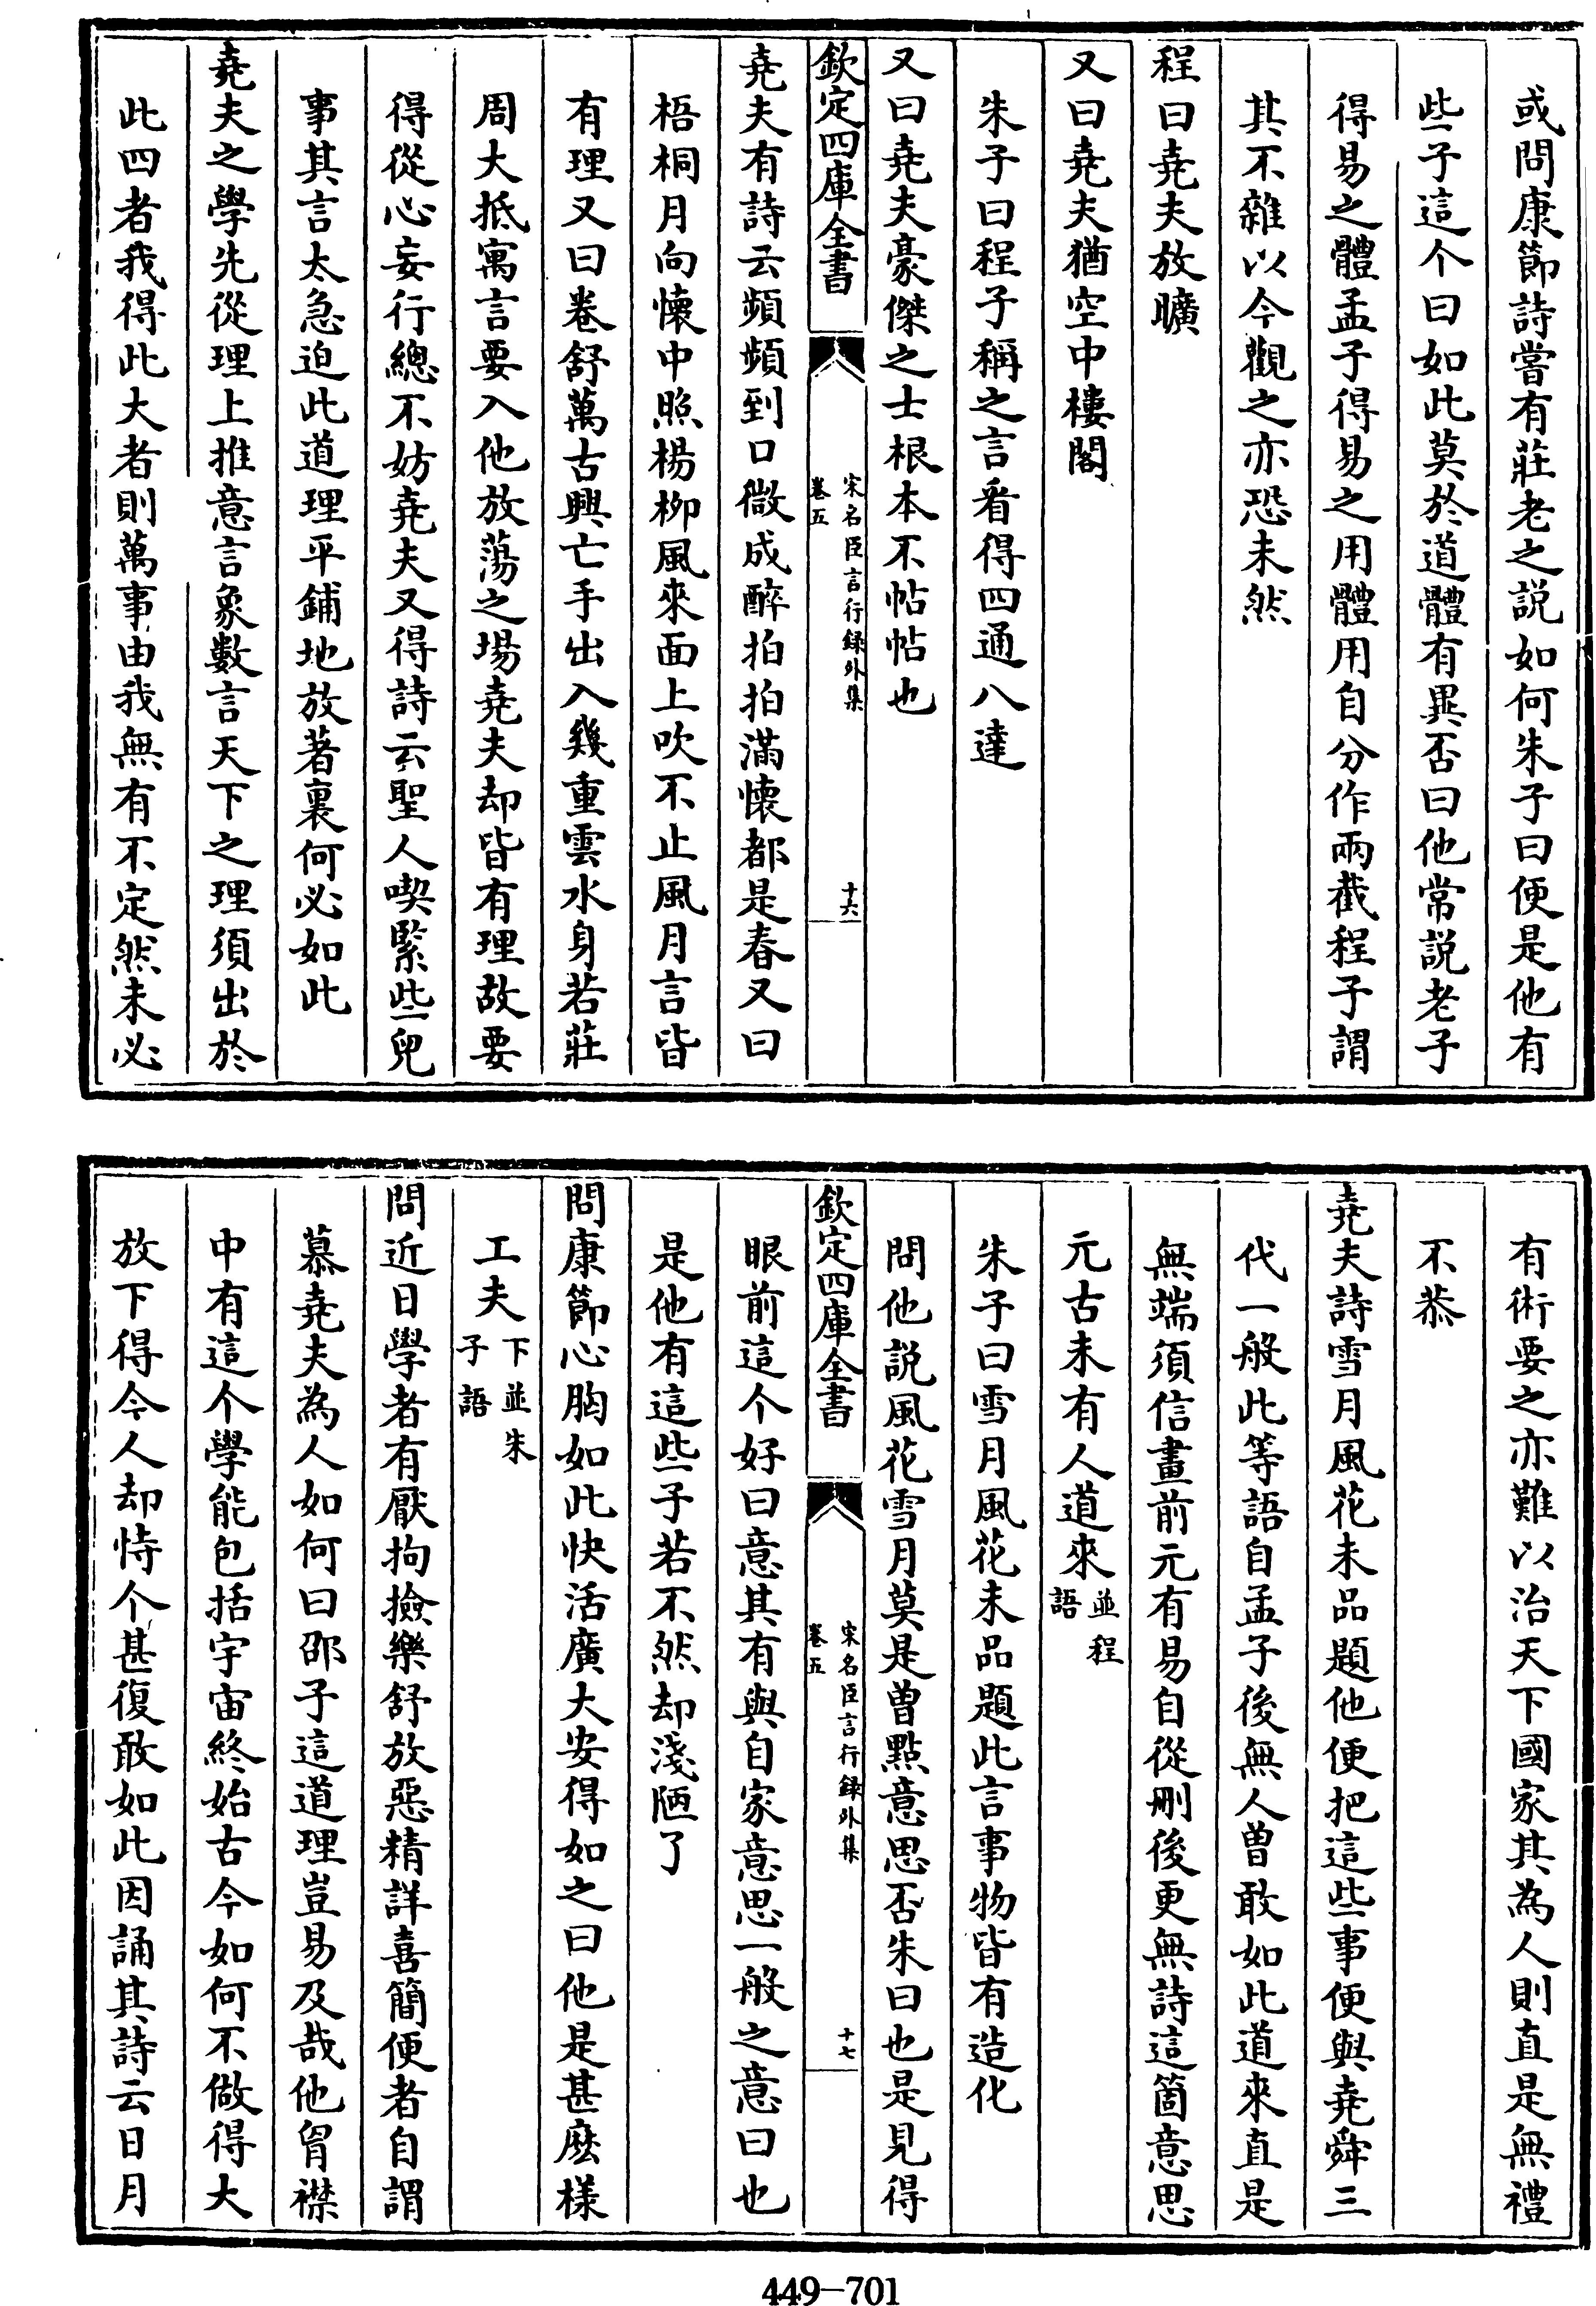 或問康節詩嘗有莊老之説如何朱子曰便是他有
些子這个曰如此莫於道體有異否曰他常説老子
得易之體孟子得易之用體用自分作兩截程子謂
其不雜以今觀之亦恐未然
程曰堯夫放曠
又曰堯夫猶空中樓閣
朱子曰程子稱之言看得四通八達
又曰堯夫豪傑之士根本不帖帖也
欽定四庫全書
宋名臣言行録外集
卷五
十六
堯夫有詩云頻頻到口微成醉拍拍滿懷都是春又曰
梧桐月向懷中照楊柳風來面上吹不止風月言皆
有理又曰卷舒萬古興亡手出入幾重雲水身若莊
周大抵寓言要入他放蕩之場堯夫却皆有理故要
得從心妄行總不妨堯夫又得詩云聖人喫緊些兒
事其言太急迫此道理平鋪地放著裏何必如此
堯夫之學先從理上推意言象數言天下之理須出於
此四者我得此大者則萬事由我無有不定然未必
有術要之亦難以治天下國家其為人則直是無禮
不恭
堯夫詩雪月風花未品題他便把這些事便與堯舜三
代一般此等語自孟子後無人曾敢如此道來直是
無端須信畫前元有易自從刪後更無詩這箇意思
元古未有人道來並程
語
朱子曰雪月風花未品題此言事物皆有造化
問他説風花雪月莫是曾點意思否朱曰也是見得
欽定四庫全書
宋名臣言行録外集
卷五
十七
眼前這个好曰意其有與自家意思一般之意曰也
是他有這些子若不然却淺陋了
問康節心胸如此快活廣大安得如之曰他是甚麽樣
工夫下並朱
子語
問近日學者有厭拘撿樂舒放惡精詳喜簡便者自謂
慕堯夫為人如何曰邵子這道理豈易及哉他胷襟
中有這个學能包括宇宙終始古今如何不做得大
放下得今人却恃个甚復敢如此因誦其詩云日月
449-701